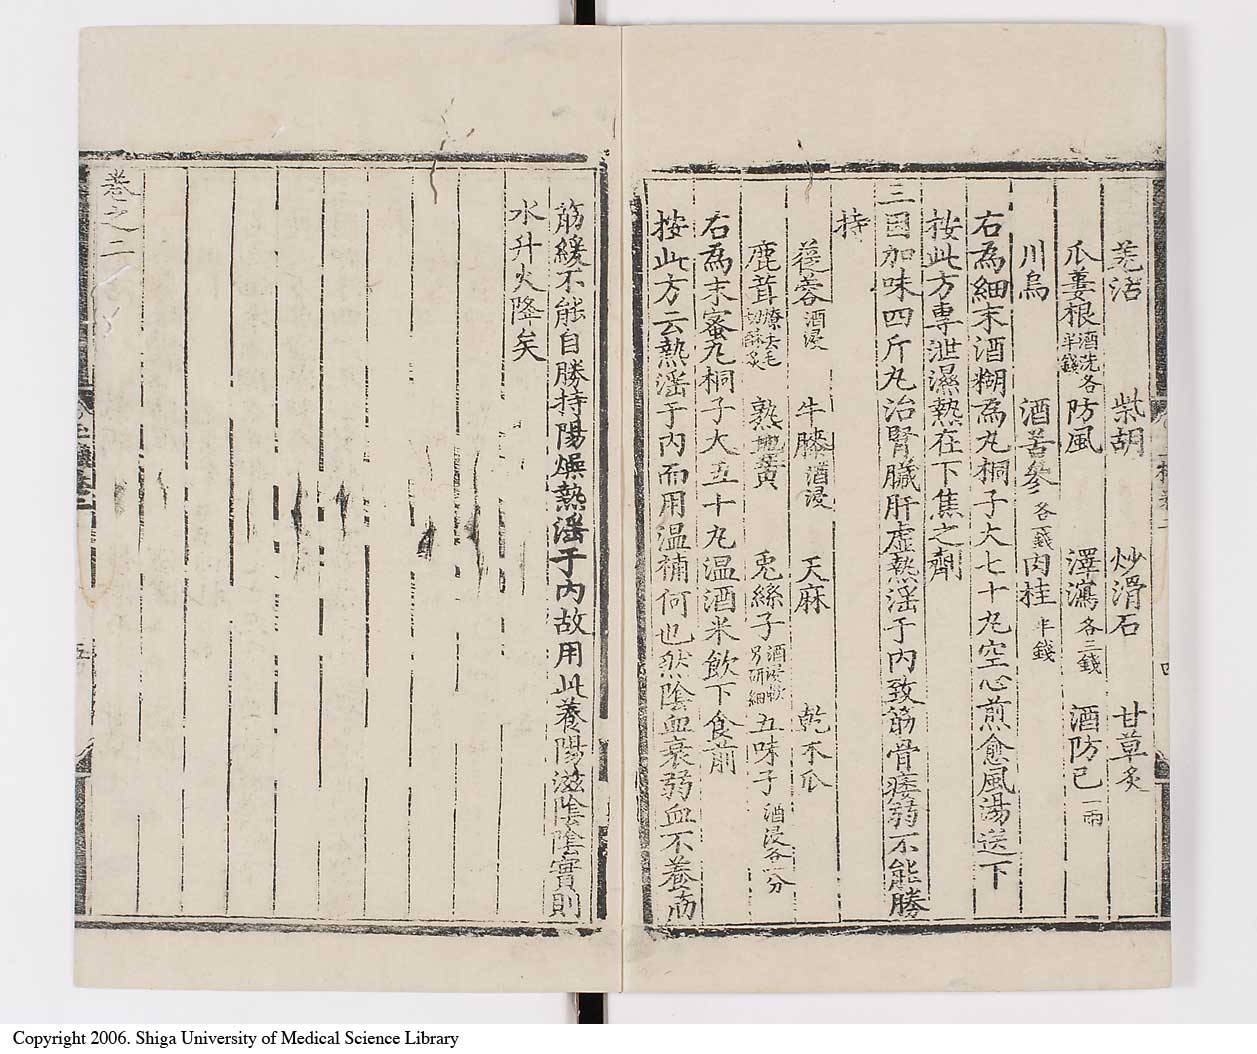 羌活　柴胡　炒滑石　甘草炙
瓜蔞根酒洗各半錢　防風　澤瀉各三錢　酒防已一兩
川烏　酒苦參各一錢　肉桂半錢
右為細末酒糊為丸桐子大七十丸空心煎愈風湯送下
按此方專泄濕熱在下焦之劑
三因加味四斤丸治腎臟肝虛熱淫于內致筋骨痿弱不能勝
持
蓯蓉酒浸　牛膝酒浸　天麻　乾木瓜
鹿茸燎去毛切酥炙　熟地黃　兎絲子酒浸軟別研細　五味子酒浸各一分
右為末蜜丸桐子大五十丸溫酒米飲下食前
按此方云熱淫于內而用溫補何也然陰血衰弱血不養筋
筋緩不能自勝持陽燥熱淫于內故用此養陽滋陰陰實則
水升火降矣
卷之二
Copyright 2006. Shiga University of Medical Science Library